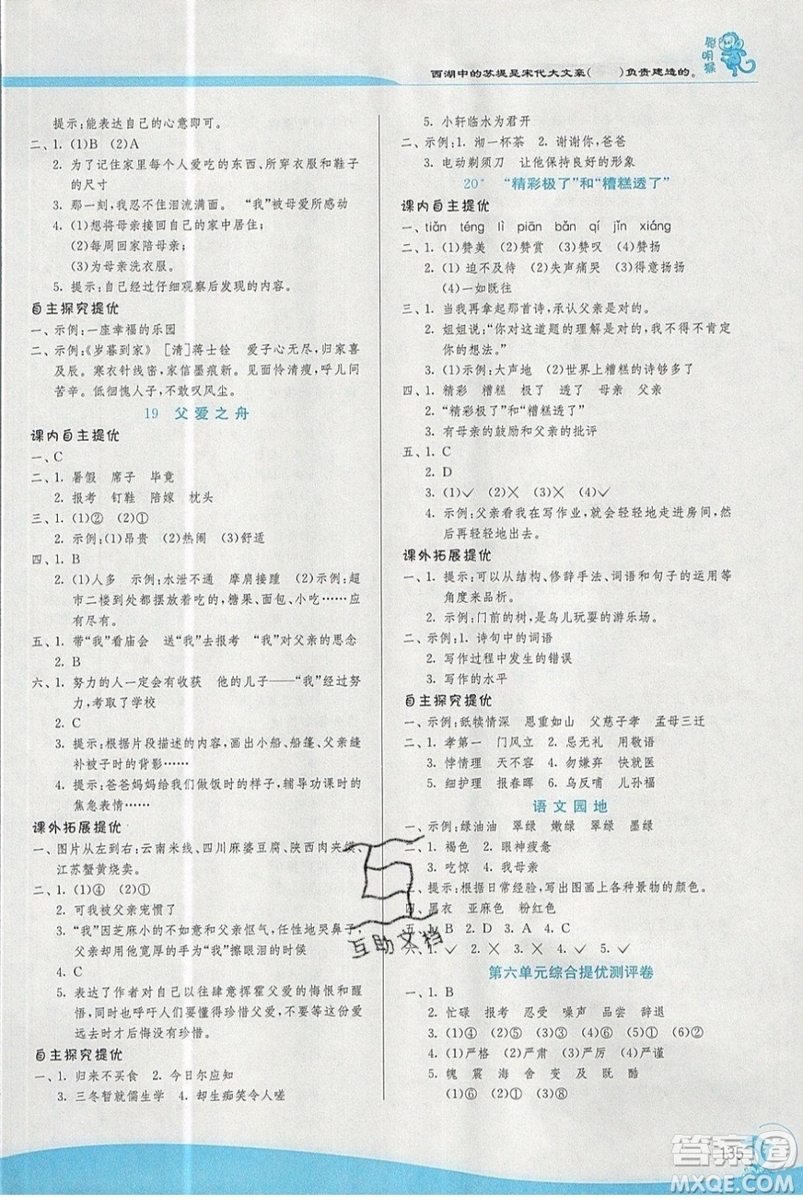 西湖中的苏堤是宋代大文豪(　　)负责建造的。
聪明猴
提示:能表达自己的心意即可。
二、1. (1)B　(2)A
2. 为了记住家里每个人爱吃的东西、所穿衣服和鞋子
的尺寸
3. 那一刻,我忍不住泪流满面。　“我”被母爱所感动
4. (1)提示:给母亲接回自己的家中居住;
(2)每周回家陪母亲;
(3)为母亲洗衣服。
5. 提示:自己经过仔细观察后发现的内容。
自主探究提优
一、示例:一座幸福的乐园
二、示例:《岁暮到家》　[清]蒋士铨　爱子心无尽,归家喜
及辰。寒衣针线密,家信墨痕新。见面怜清瘦,呼儿问
苦辛。低徊愧人子,不敢叹风尘。
19　父爱之舟
课内自主提优
一、C
二、1. 暑假　席子　毕竟
2. 报考　钉鞋　陪嫁　枕头
三、1. (1)②　(2)①
2. 示例:(1)昂贵　(2)热闹　(3)舒适
四、1. B
2. (1)人多　示例:水泄不通　摩肩接踵　(2)示例:超
市二楼到处都摆放着吃的,糖果、面包、小吃……应
有尽有。
五、1. 带“我”看庙会　送“我”去报考　“我”对父亲的思念
2. B
六、1. 努力的人一定会有收获　他的儿子——“我”终于
考取了学校
2. C
3. 提示:根据片段描述的内容,画出小船、船篷、父亲缝
补被子时的背影……
4. 提示:爸爸妈妈给你做吃的时的样子,辅导功课时的
焦急表情……
课外拓展提优
一、图片从左到右:云南米线、四川麻婆豆腐、陕西肉夹馍、
江苏蟹黄烧卖。
二、1. (1)④　(2)①
2. 可我被父亲宠惯了
3. “我”因芝麻小的不如意和父亲任性、任性地哭鼻子,
父亲常用他宽厚的手为“我”擦眼泪的时候
4. C
5. 表达了作者对自己以往肆意挥霍父爱的悔恨和醒
悟,同时也呼吁人们要懂得珍惜父爱,不要等到父爱
远去时才后悔没有珍惜。
自主探究提优
一、1. 归来不买食　2. 今日尔应知
3. 三冬暂就儒生学　4. 却生痴笑令人嗟
5. 小轩临水为君开
二、示例:1. 沏一杯茶　2. 谢谢你,爸爸
3. 电动剃须刀　让他保持良好的形象
20*　“精彩极了”和“糟糕透了”
课内自主提优
一、tiǎn　téng　lì　piān　bǎn　qí　jǐn　xiáng
二、1. (1)赞美　(2)赞赏　(3)赞叹　(4)赞扬
2. (1)迫不及待　(2)失声痛哭　(3)得意扬扬
(4)一如既往
三、1. 当我再拿起那首诗,承认父亲是对的。
2. 姐姐说:“你对这道题的理解是对的,我不得不肯定
你的想法。”
3. 示例:(1)大声地　(2)世界上糟糕的诗够多了
四、1. 精彩　糟糕　极了　透了　母亲　父亲
2. “精彩极了”和“糟糕透了”
3. 有母亲的鼓励和父亲的批评
五、1. C
2. D
3. (1)✓　(2)✕　(3)✕　(4)✓
4. 示例:父亲看我在写作业,就轻轻地走进房间,然
后再轻轻地走出。
课外拓展提优
一、1. 提示:可以从结构、修辞手法、词语和句子的运用等
角度来品析。
2. 示例:门前的树,是鸟儿玩耍的游乐场。
二、示例:1. 诗句中的词语
2. 写作过程中发生的错误
3. 写作的水平
自主探究提优
一、示例:舐犊情深　恩重如山　父慈子孝　孟母三迁
二、1. 孝第一　门风立　2. 忌无礼　用敬语
3. 悖情理　天不容　4. 勿嫌弃　快就医
5. 细护理　报春晖　6. 乌反哺　儿孙福
语文园地
一、示例:绿油油　翠绿　嫩绿　翠绿　墨绿
二、1. 褐色　2. 眼神疲惫
3. 吃惊　4. 我母亲
三、提示:根据日常经验,写出图片上各种景物的颜色。
四、黑衣　亚麻色　粉红色
五、1. D　2. B　3. A　4. C
六、1. ✓　4. ✓　5. ✓
第六单元综合提优测评卷
一、1. B
2. 忙碌　报考　忍受　噪声　品尝　辞退
3. (1)④　(2)①　(3)②　(4)⑤
4. (1)严格　(2)严肃　(3)严厉　(4)严谨
5. 魄　震　海　舍　变　及　既　酷
(1)⑥　(2)②　(3)④
互助文档
135
答案圈
MXQE.COM